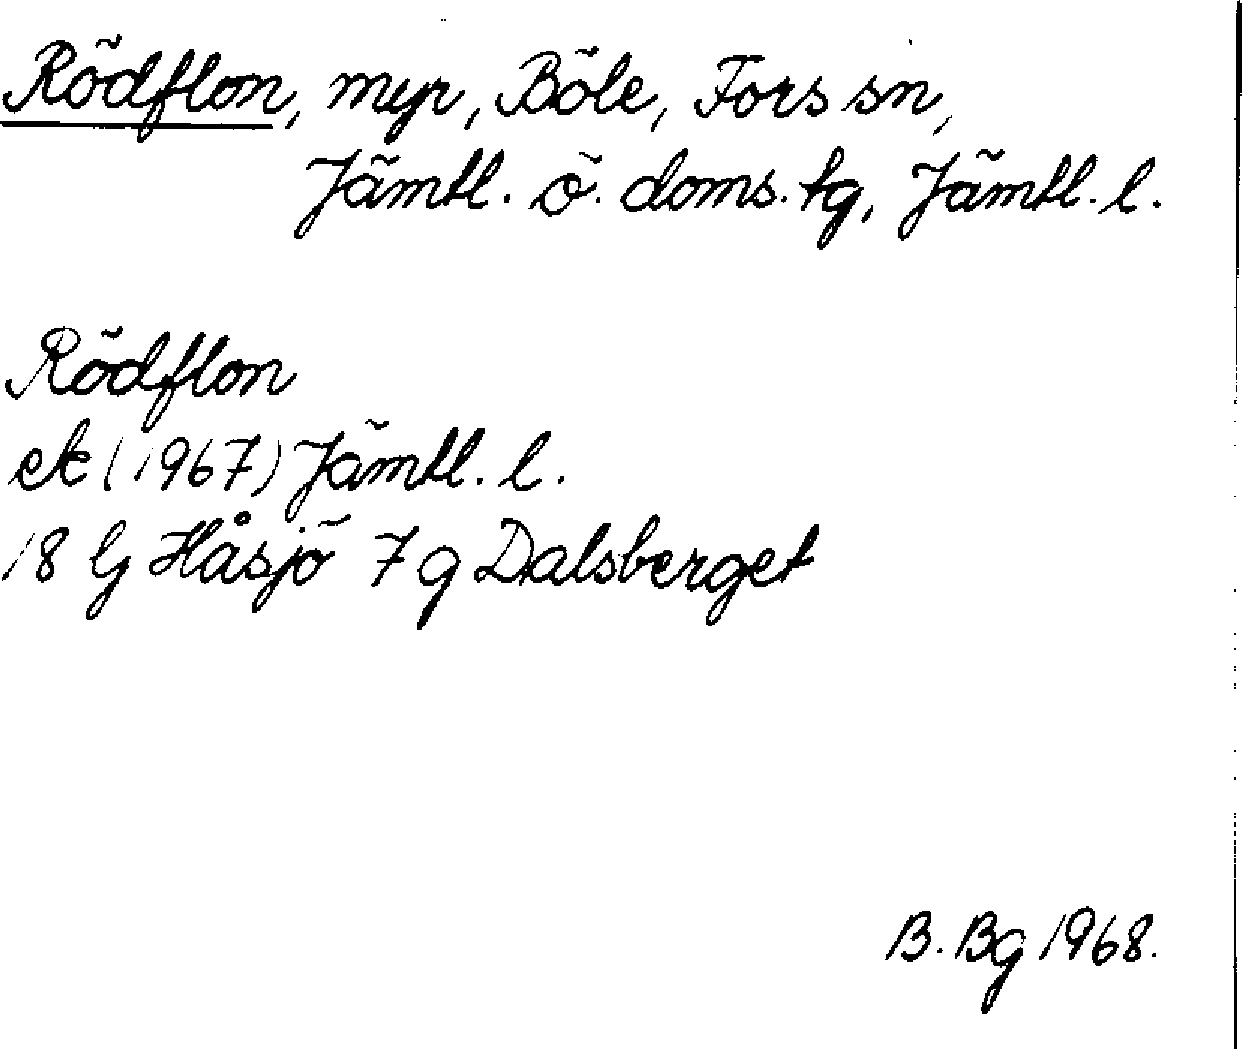 Rödflon, myr, Böle, Fors sn,
Jämtl. ö. doms. tg, Jämtl. l.
Rödflon
ek (1967) Jämtl. l.
18 G Håsjö 7 g Dalsberget
B. Bg 1968.